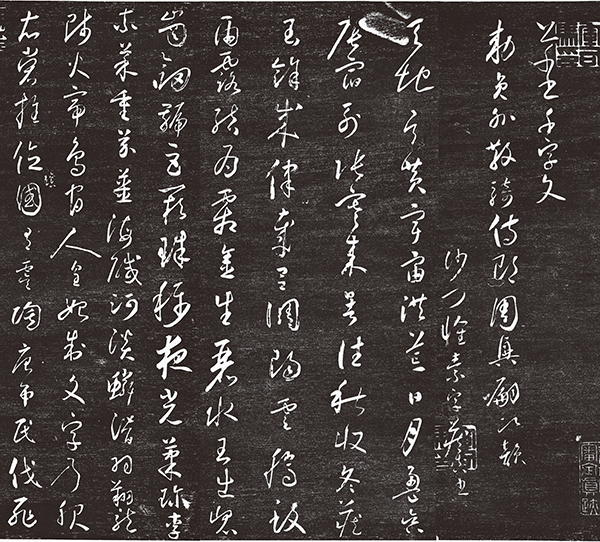 千字文
敕員外散騎侍郎周興嗣次韻
沙門懷素字藏真書
天地玄黃宇宙洪荒日月盈昃
辰宿列張寒來暑往秋收冬藏
閏餘成歲律呂調陽雲騰致
雨露結為霜金生麗水玉出崑
崗劍號巨闕珠稱夜光菓珍李
柰菜重芥薑海鹹河淡鱗潛羽翔龍
師火帝鳥官人皇始制文字乃服
衣裳推位讓國有虞陶唐弔民伐罪